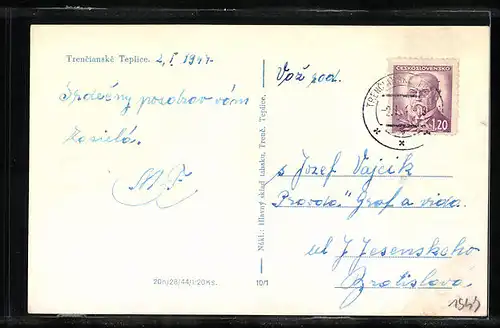 Trenčianské Teplice. 2. I. 1947.
Srdečný pozdrav vám
zasielá.
Vož. pod.
ČESKOSLOVENSKO
1.20
TRENČ
s Jozef Vajcik
"Pravda" Graf a vida.
ul J. Jesenskeho
Bratislava.
Nákl.: Hlavný sklad tabaku, Trenč. Teplice.
20h/28/44/I:20Ks.
10/1